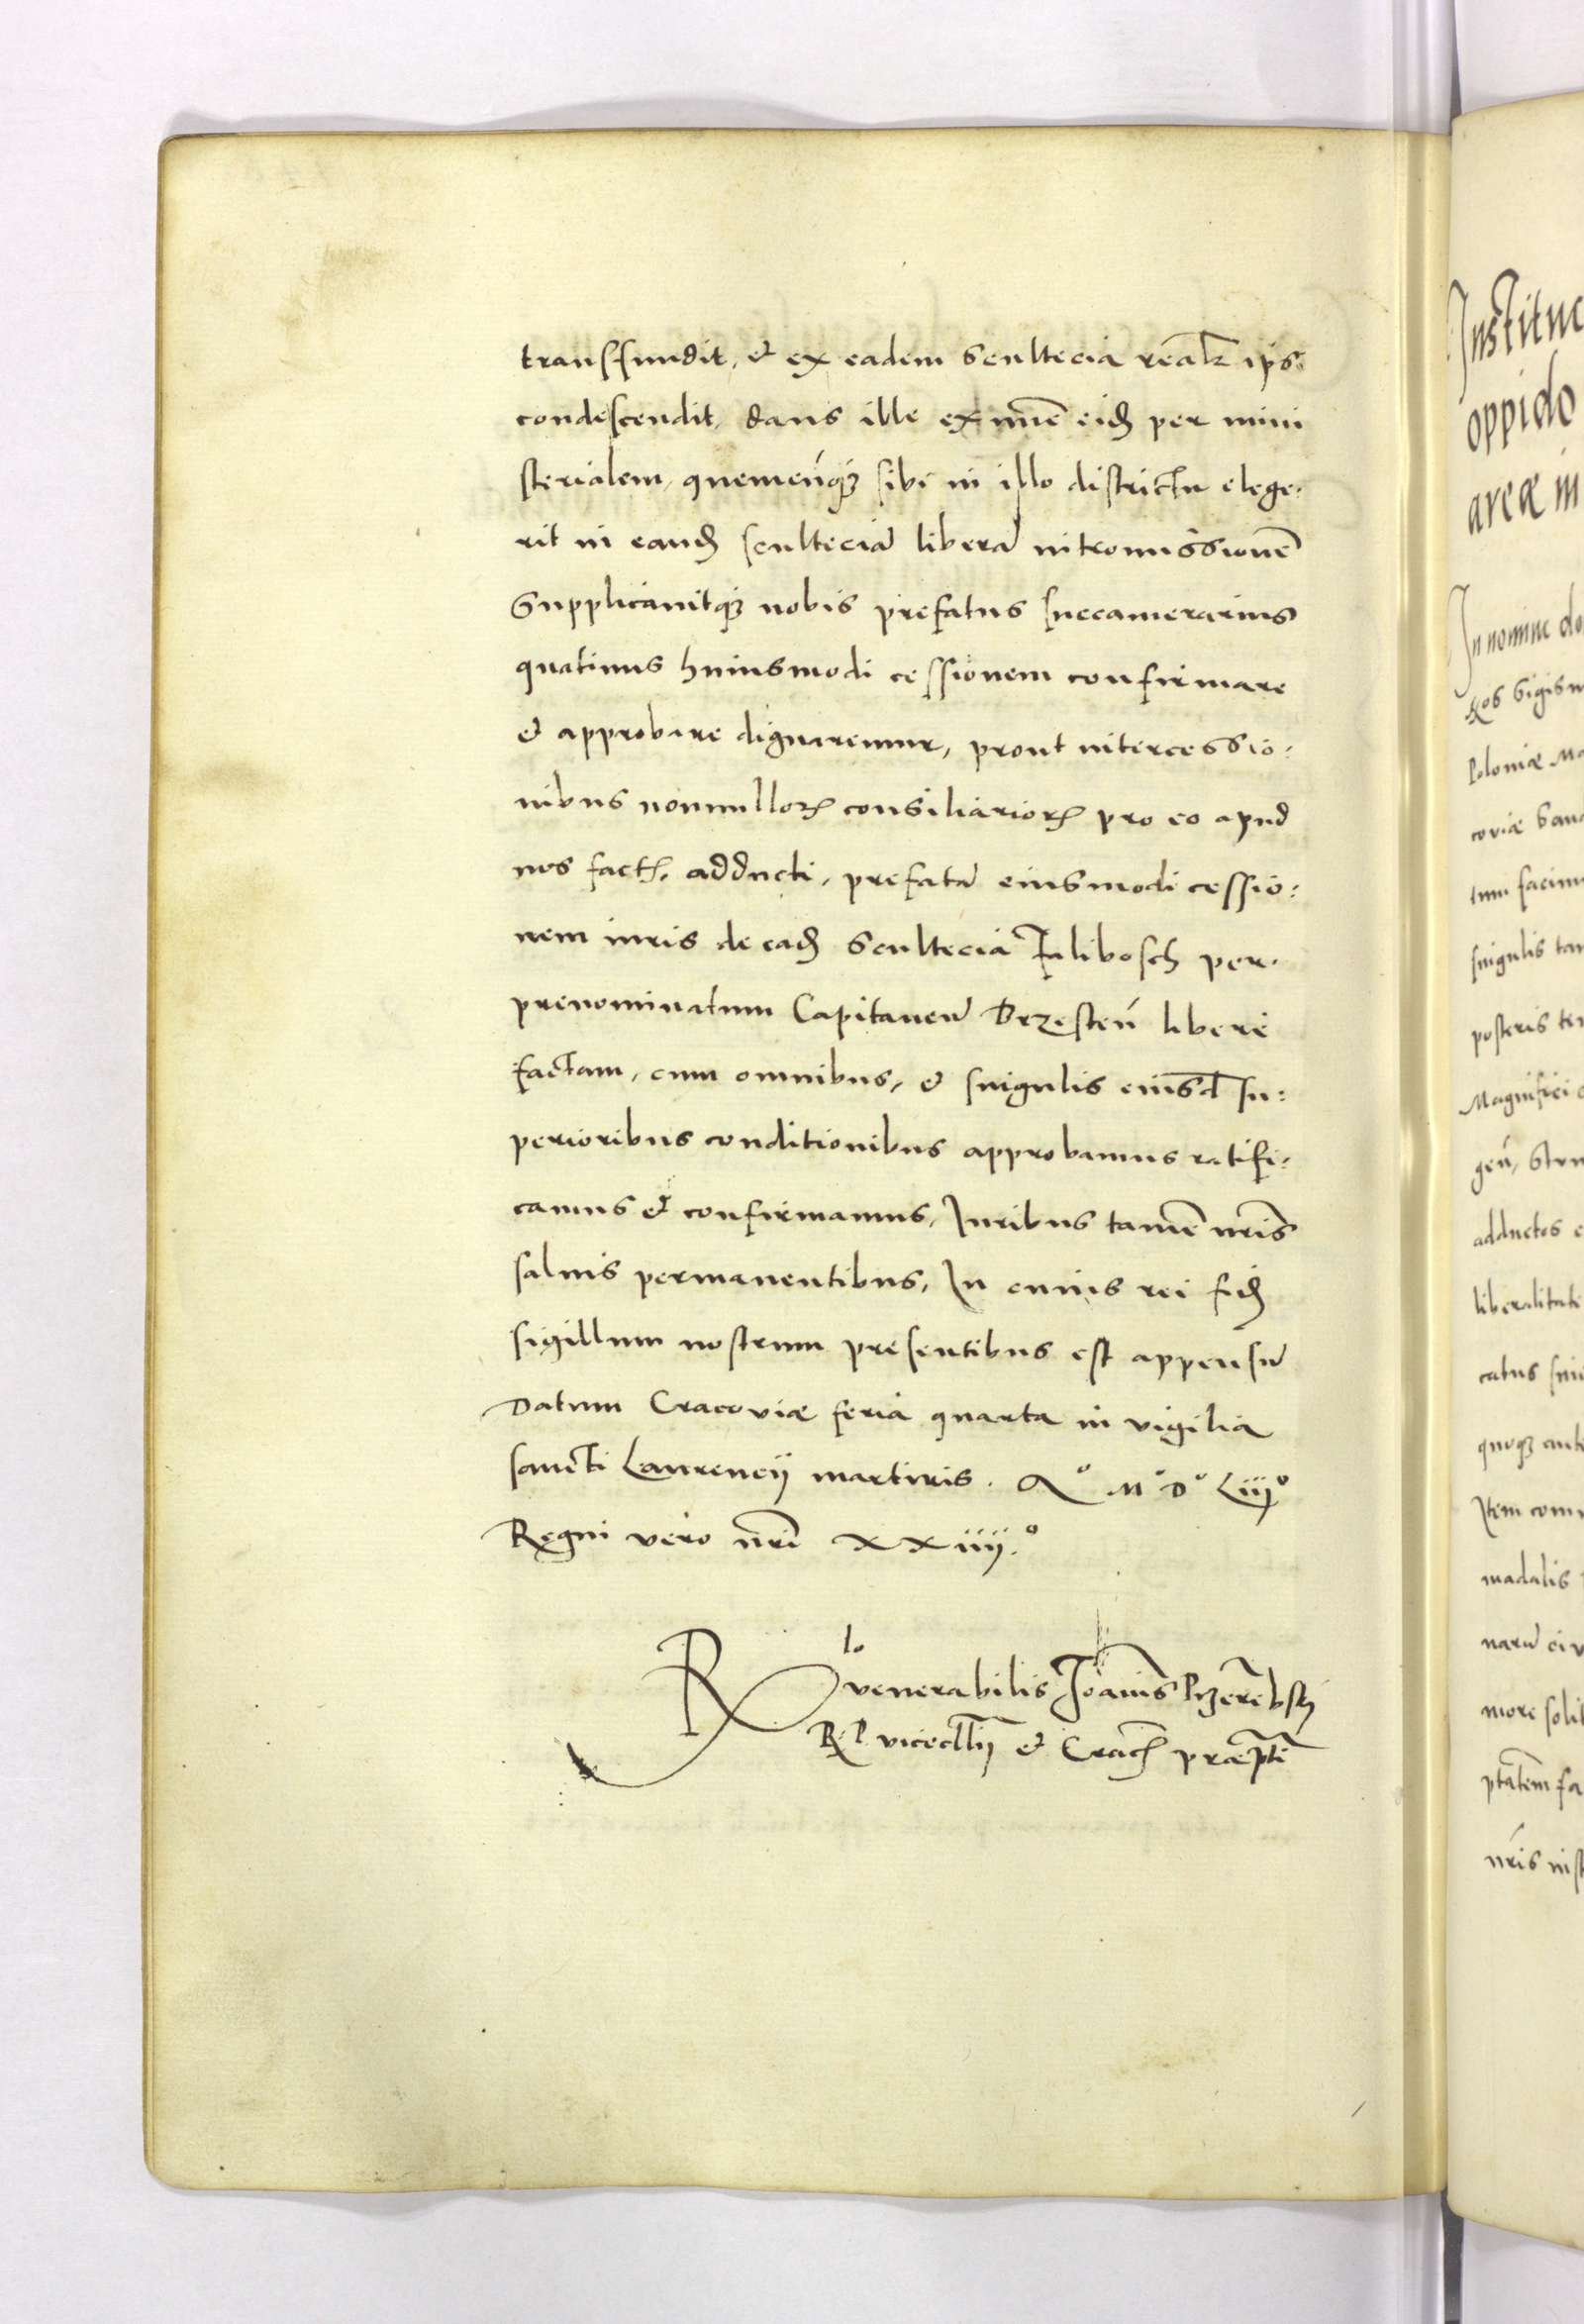 transfundit, et ex eadem scultecia realr ips:
condescendit, dans illi ex nūc eid per mini
sterialem, quemcūqꝫ sibi in illo districtu elege:
rit in eand scultecia libera intromissionē
Supplicavitqꝫ nobis prefatus succamerarius
quatinus huiusmodi cessionem confirmare
et approbare dignaremur, prout intercessio:
nibus nonnulloꝝ consiliarioꝝ pro eo apud
nos fact, adducti, prefata eiusmodi cessio:
nem iuris de ead scultecia Falibosch per
prenominatum Capitaneū Brzesteń libere
factam, cum omnibus, et singulis eiusd su:
perioribus conditionibus approbamus ratifi:
camus et confirmamus, Iuribus tamē nris
salvis permanentibus, In cuius rei fid
sigillum nostrum presentibus est appensū
Datum Cracoviæ feria quarta in vigilia
sancti Laurencij martiris. Aº Mº Dº Liijº
Regni vero nri xxiiij.º
Rlo venerabilis Joānis Przerēbsk
R. P. vicecllrij et Crach præpti
Institue
oppido
areæ in
In nomine do
Nos Sigism
Poloniæ Ma
coviæ Sand
tum facim
singulis tam
posteris te
Magnifici
geń, Stru
adductos e
liberalitati
catus sni
quoqꝫ ante
Item com
madalis
narū civ
more solit
ptatem fa
nris inst